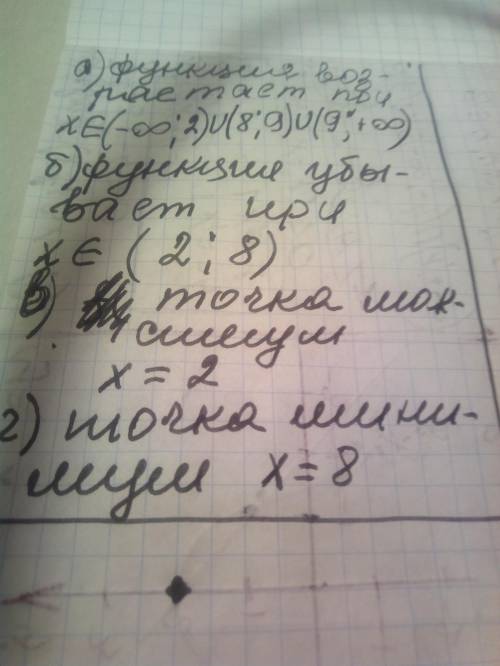 а) функция воз-
растает при
x∈(-∞; 2)∪(8; 9)∪(9; +∞)
б) функция убы-
вает при
x ∈ (2; 8)
в) точка мак-
симум
x = 2
г) точка мини-
мум x = 8